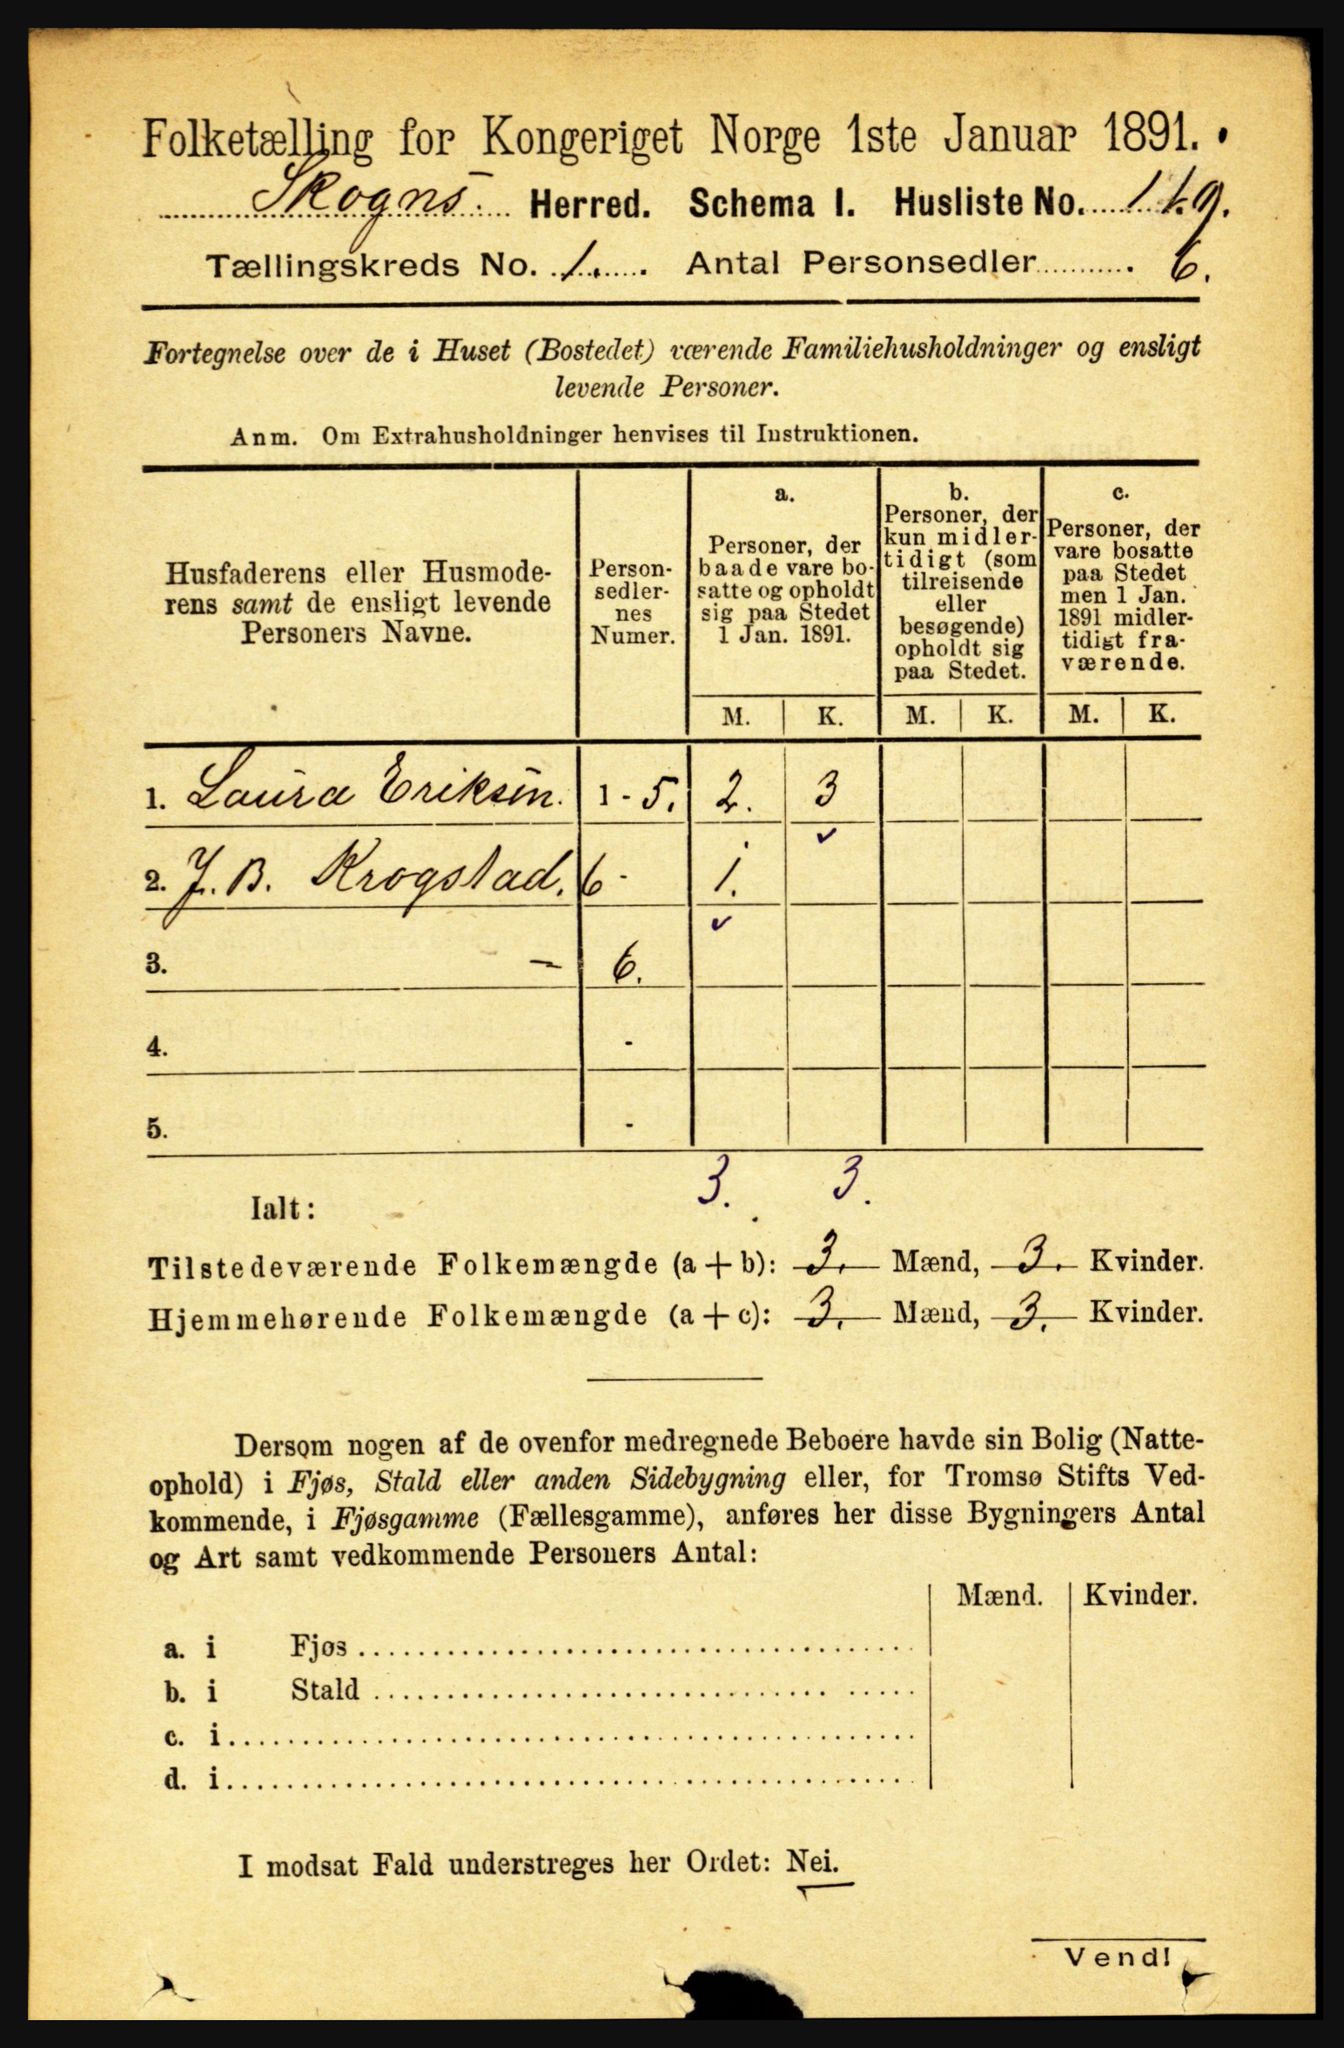 Folketælling for Kongeriget Norge 1ste Januar 1891.
Skogns Herred. Schema I. Husliste No. 149.
Tællingskreds No. 1. Antal Personsedler 6.
Fortegnelse over de i Huset (Bostedet) værende Familiehusholdninger og ensligt
levende Personer.
Anm. Om Extrahusholdninger henvises til Instruktionen.
Husfaderens eller Husmode-
rens samt de ensligt levende
Personers Navne.
Person-
sedler-
nes
Numer.
a.
Personer, der
baade vare bo-
satte og opholdt
sig paa Stedet
1 Jan. 1891.
b.
Personer, der
kun midler-
tidigt (som
tilreisende
eller
besøgende)
opholdt sig
paa Stedet.
c.
Personer, der
vare bosatte
paa Stedet
men 1 Jan.
1891 midler-
tidigt fra-
værende.
M. K. M. K. M. K.
1. Laura Eriksen. 1 - 5. 2. 3
2. J. B. Krogstad. 6 - 1.
3. — 6.
4. -
5. -
3. 3.
Ialt:
Tilstedeværende Folkemængde (a + b): 3. Mænd, 3. Kvinder.
Hjemmehørende Folkemængde (a + c): 3. Mænd, 3. Kvinder.
Dersom nogen af de ovenfor medregnede Beboere havde sin Bolig (Natte-
ophold) i Fjøs, Stald eller anden Sidebygning eller, for Tromsø Stifts Ved-
kommende, i Fjøsgamme (Fællesgamme), anføres her disse Bygningers Antal
og Art samt vedkommende Personers Antal:
Mænd. Kvinder.
a. i Fjøs
b. i Stald
c. i
d. i
I modsat Fald understreges her Ordet: Nei.
Vend!